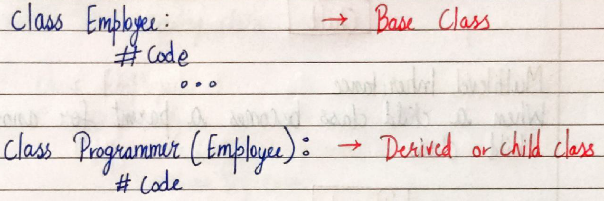 Class Employee: → Base Class
# Code
...
Class Programmer (Employee): → Derived or child class
# Code